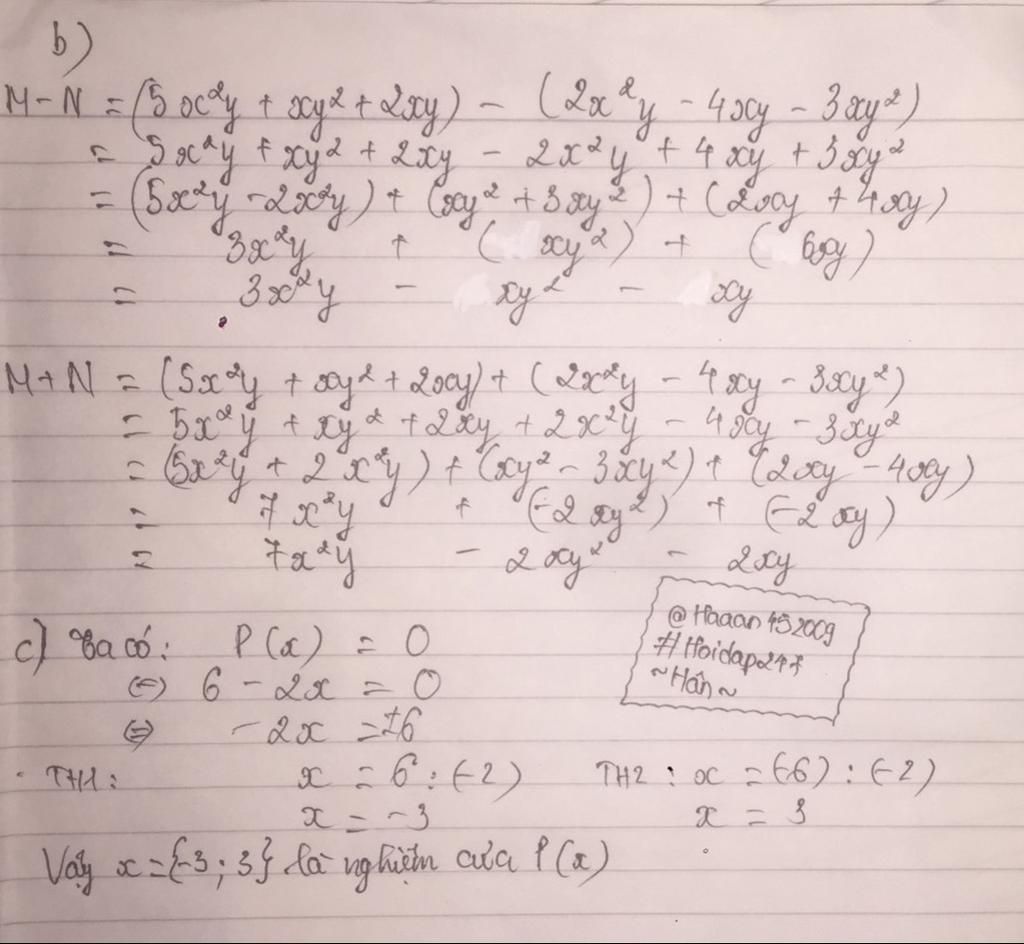 b)
M-N = (5x²y + xy² + 2xy) - (2x²y - 4xy - 3xy²)
= 5x²y + xy² + 2xy - 2x²y + 4xy + 3xy²
= (5x²y - 2x²y) + (xy² + 3xy²) + (2xy + 4xy)
= 3x²y + ( xy²) + ( 6xy)
= 3x²y - xy² - xy
M+N = (5x²y + xy² + 2xy) + (2x²y - 4xy - 3xy²)
= 5x²y + xy² + 2xy + 2x²y - 4xy - 3xy²
= (5x²y + 2x²y) + (xy² - 3xy²) + (2xy - 4xy)
= 7x²y + (-2xy²) + (-2xy)
= 7x²y - 2xy² - 2xy
@Haaan452009
#Hoidap247
~Hân~
c) Ta có: P(x) = 0
⇔ 6 - 2x = 0
⇔ -2x = ±6
TH1: x = 6 : (-2) TH2 : x = (-6) : (-2)
x = -3 x = 3
Vậy x = {-3; 3} là nghiệm của P(x)